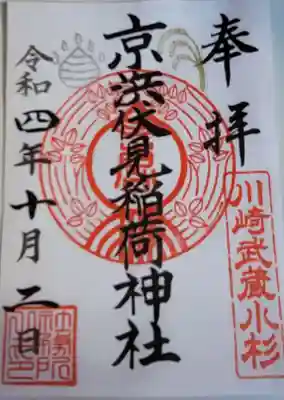 奉拝
川崎武蔵小杉
京浜伏見稲荷神社
令和四年十月二日